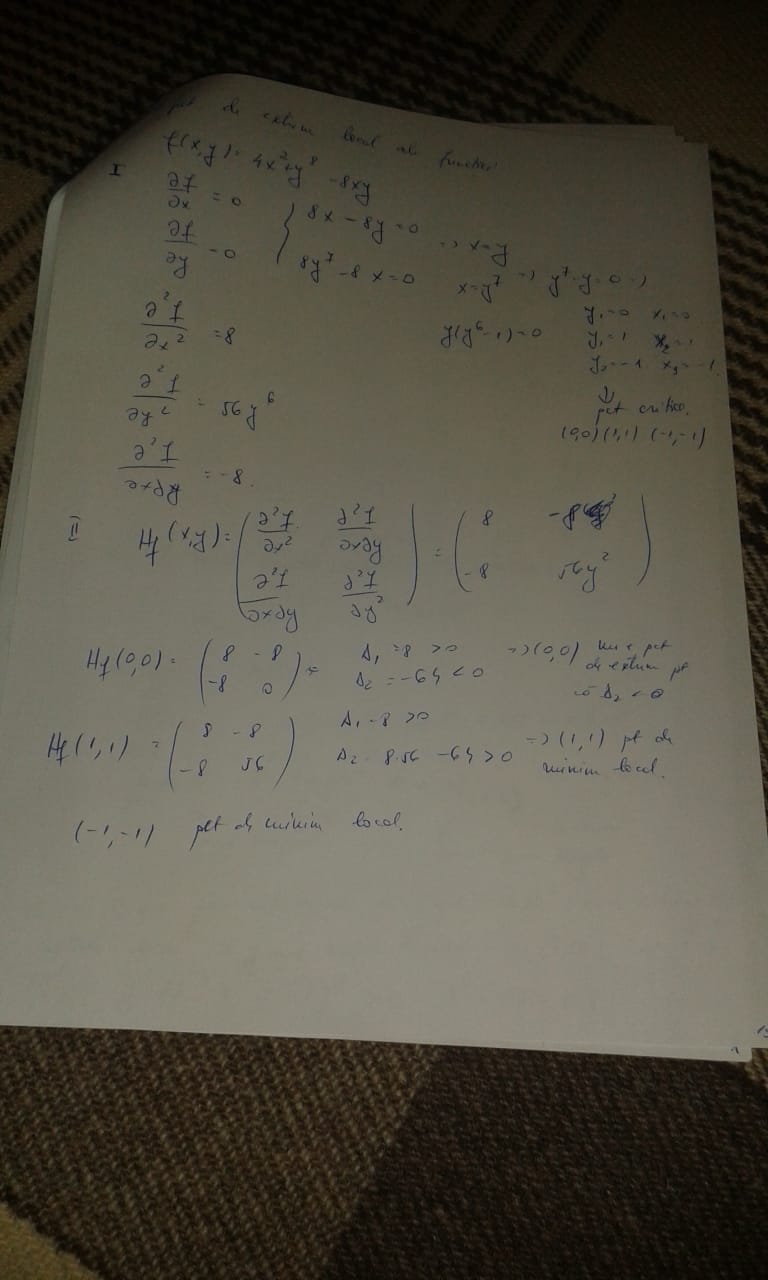 pct de extrem local ale functiei
I f(x,y) = 4x²+y⁸ -8xy
∂f/∂x = 0 { 8x - 8y = 0 => x=y
∂f/∂y = 0 8y⁷ - 8x = 0 x=y⁷ => y⁷-y=0 =>
y(y⁶-1)=0
y₁=0 x₁=0
y₁=1 x₂=1
y₂=-1 x₃=-1
∂²f/∂x² = 8
∂²f/∂y² = 56y⁶
pct critice.
(0,0) (1,1) (-1,-1)
∂²f/∂x∂y = -8.
II Hf(x,y) = ( ∂²f/∂x² ∂²f/∂x∂y ; ∂²f/∂x∂y ∂²f/∂y² ) = ( 8 -8 ; -8 56y² )
Hf(0,0) = ( 8 -8 ; -8 0 ) = Δ₁ = 8 > 0 => (0,0) nu e pct
Δ₂ = -64 < 0 de extrem pt
că Δ₂ < 0
Hf(1,1) = ( 8 -8 ; -8 56 ) Δ₁ = 8 > 0
Δ₂ = 8·56 - 64 > 0 => (1,1) pt de
minim local.
(-1,-1) pct de minim local.